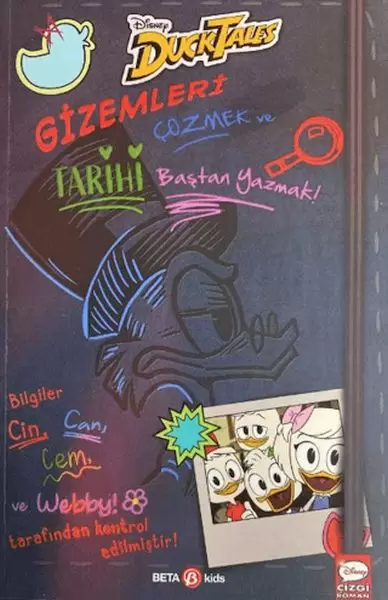 Disney
DUCKTALES
GİZEMLERİ
ÇÖZMEK ve
TARİHİ Baştan Yazmak!
Bilgiler
Cin, Can,
Cem,
ve Webby!
tarafından kontrol
edilmiştir!
BETA kids
Disney
ÇİZGİ
ROMAN